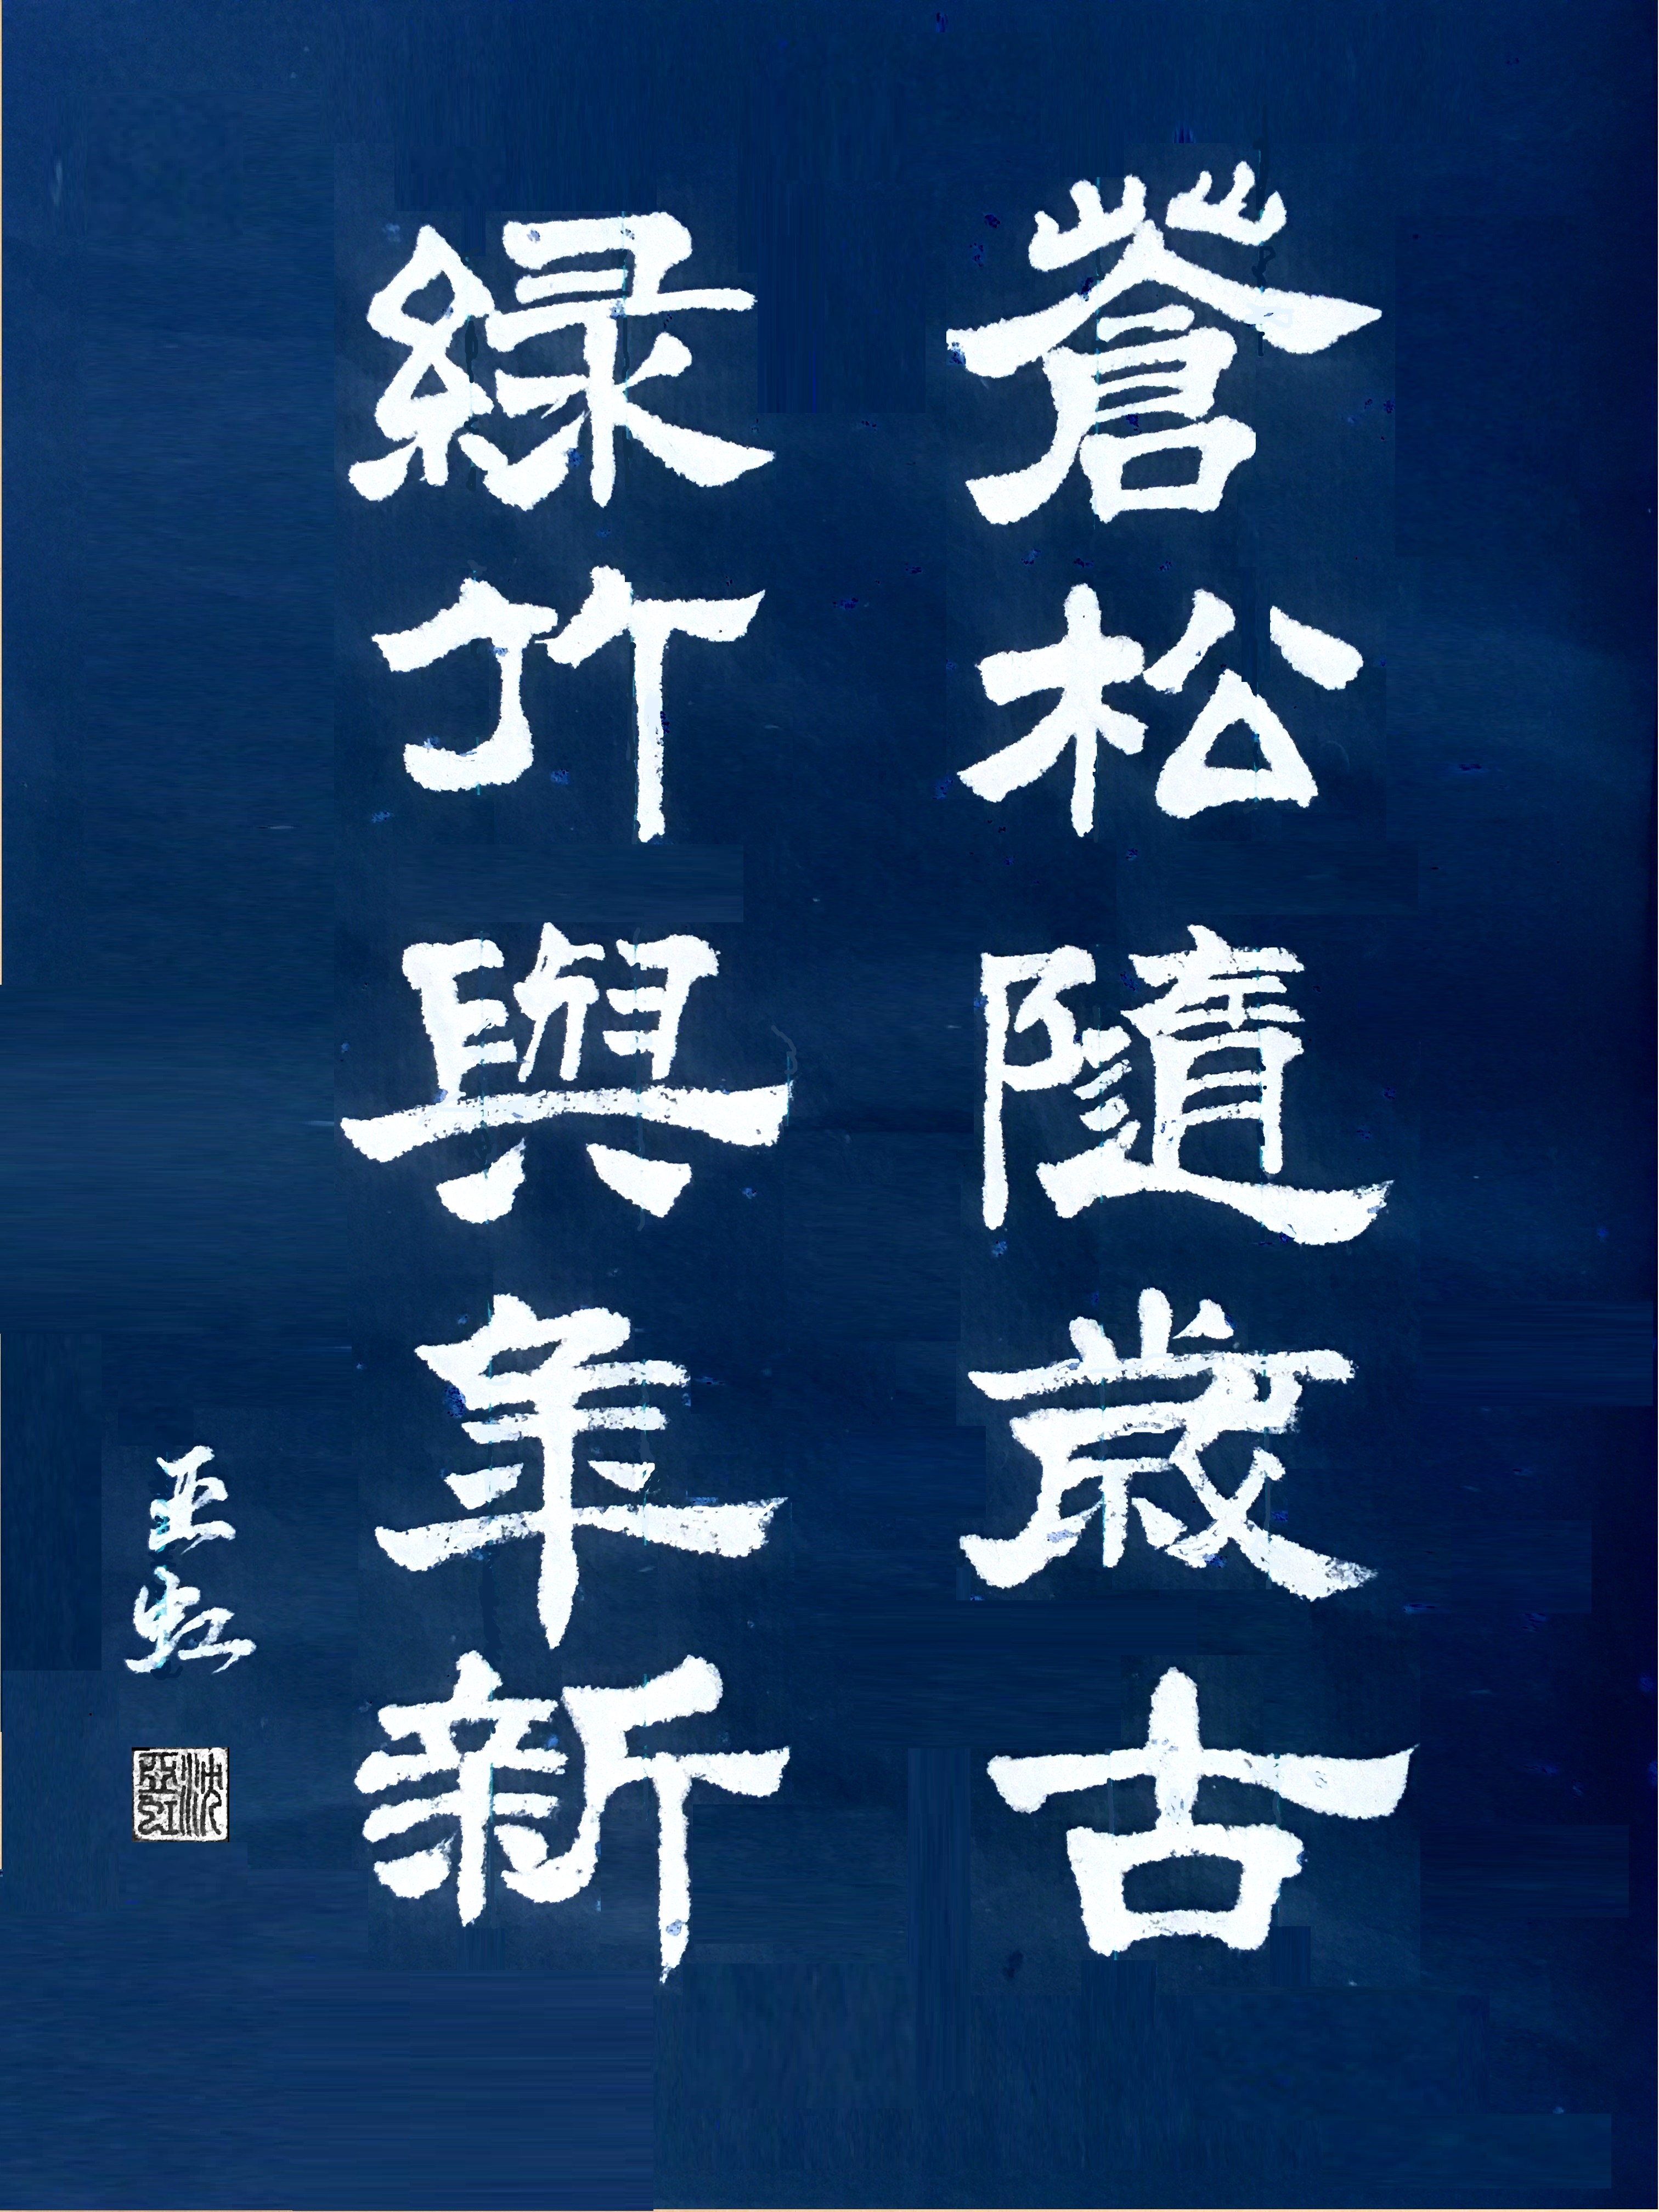 蒼松隨歲古
緑竹與年新
亚虹
沈亞虹